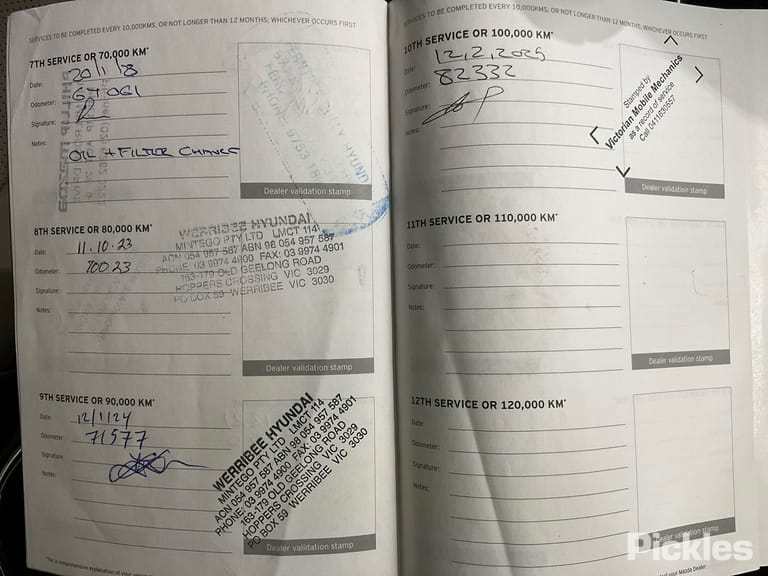 SERVICES TO BE COMPLETED EVERY 10,000KMS, OR NOT LONGER THAN 12 MONTHS; WHICHEVER OCCURS FIRST
7TH SERVICE OR 70,000 KM*
Date: 20/1/8
Odometer:
Signature:
Notes:
OIL + FILTER CHANGE
Dealer validation stamp
8TH SERVICE OR 80,000 KM*
Date: 11.10.23
Odometer: 70023
Signature:
Notes:
WERRIBEE HYUNDAI
MINTEGO PTY LTD LMCT 114
ACN 054 957 587 ABN 98 054 957 587
PHONE: 03 9974 4900 FAX: 03 9974 4901
163-179 OLD GEELONG ROAD
HOPPERS CROSSING VIC 3029
PO BOX 59 WERRIBEE VIC 3030
Dealer validation stamp
9TH SERVICE OR 90,000 KM*
Date: 12/1/24
Odometer: 71577
Signature:
Notes:
WERRIBEE HYUNDAI
MINTEGO PTY LTD LMCT 114
ACN 054 957 587 ABN 98 054 957 587
PHONE: 03 9974 4900 FAX: 03 9974 4901
163-179 OLD GEELONG ROAD
HOPPERS CROSSING VIC 3029
PO BOX 59 WERRIBEE VIC 3030
Dealer validation stamp
*For a comprehensive explanation of your
SERVICES TO BE COMPLETED EVERY 10,000KMS, OR NOT LONGER THAN 12 MONTHS; WHICHEVER OCCURS FIRST
10TH SERVICE OR 100,000 KM*
Date: 12,2,2025
Odometer: 82332
Signature:
Notes:
Stamped by
Victorian Mobile Mechanics
as a record of service
Call 0411630557
Dealer validation stamp
11TH SERVICE OR 110,000 KM*
Date:
Odometer:
Signature:
Notes:
Dealer validation stamp
12TH SERVICE OR 120,000 KM*
Date:
Odometer:
Signature:
Notes:
Dealer validation stamp
your Mazda Dealer
Pickles